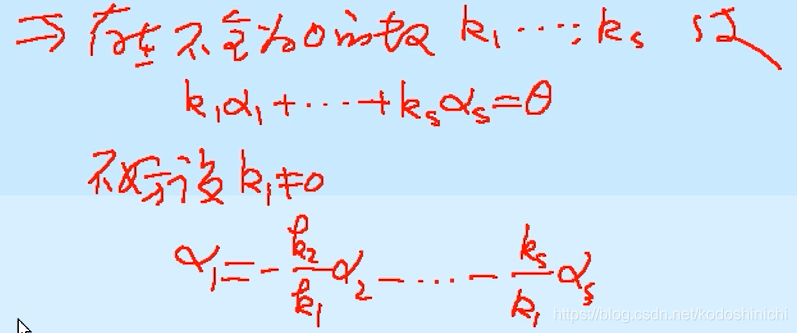 ⇒ 存在不全为0的数 k₁ ⋯, kₛ 使
k₁α₁+⋯+kₛαₛ=θ
不妨设 k₁≠0
α₁=-k₂/k₁ α₂-⋯-kₛ/k₁ αₛ
https://blog.csdn.net/kodoshinichi